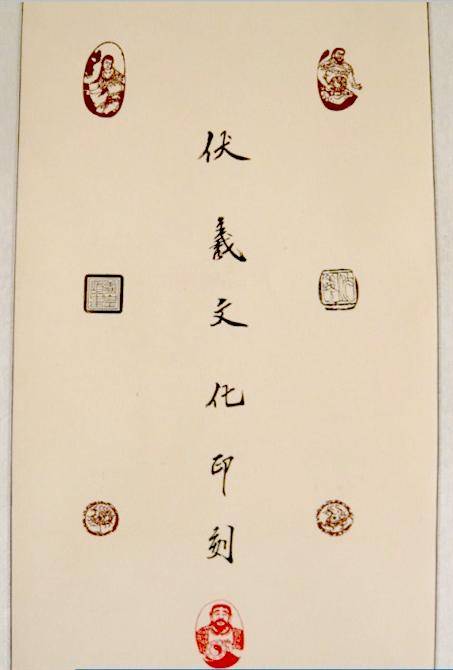 伏羲文化印刻